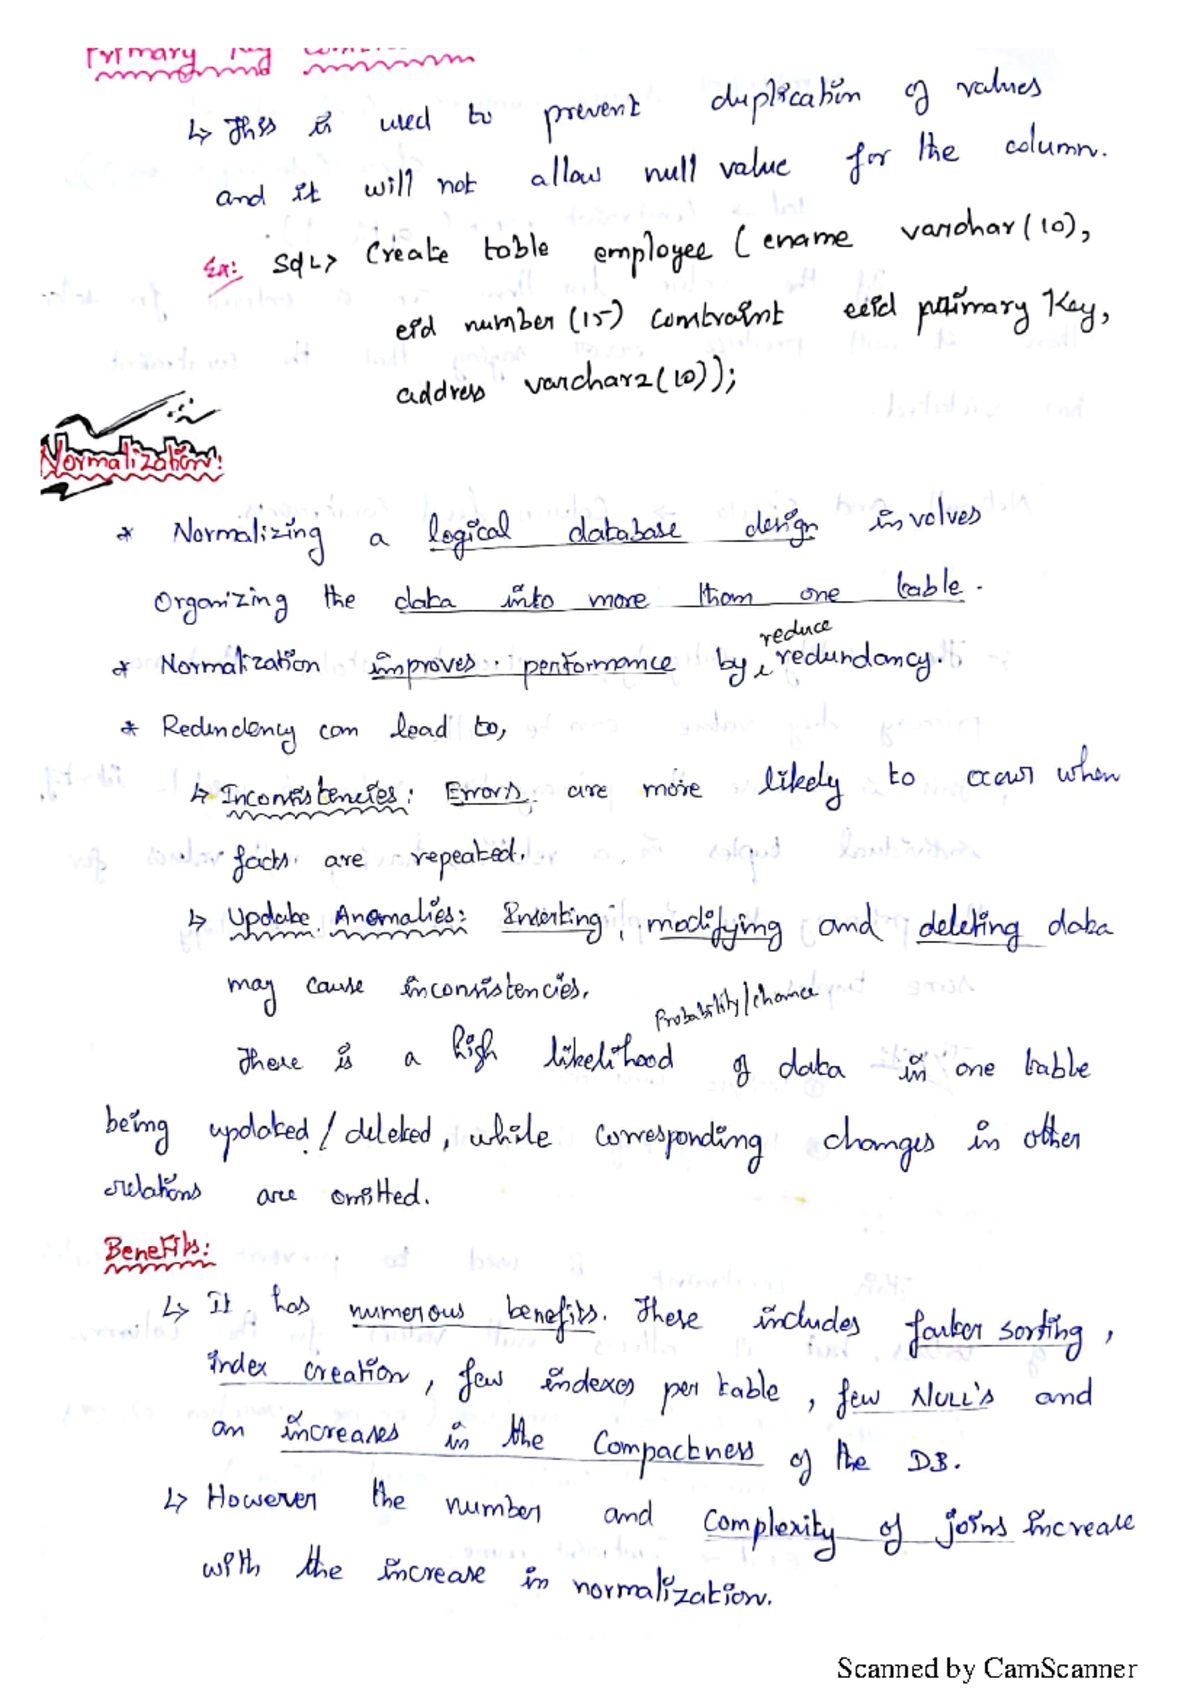 Primary Key
↳ This is used to prevent duplication of values
and it will not allow null value for the column.
Ex: SQL> Create table employee (ename varchar(10),
eid number(15) constraint eeid primary Key,
address varchar2(10));
Normalization:
* Normalizing a logical database design involves
Organizing the data into more than one table.
reduce
* Normalization improves performance by redundancy.
* Redundency can lead to,
↳ Inconsistencies: Errors are more likely to occur when
facts are repeated.
↳ Update Anomalies: Inserting, modifying and deleting data
may cause inconsistencies.
Probability/chance
There is a high likelihood of data in one table
being updated/deleted, while corresponding changes in other
relations are omitted.
Benefits:
↳ It has numerous benefits. These includes faster sorting,
index creation, few indexes per table, few NULL's and
an increases in the Compactness of the DB.
↳ However the number and Complexity of joins increase
with the increase in normalization.
Scanned by CamScanner